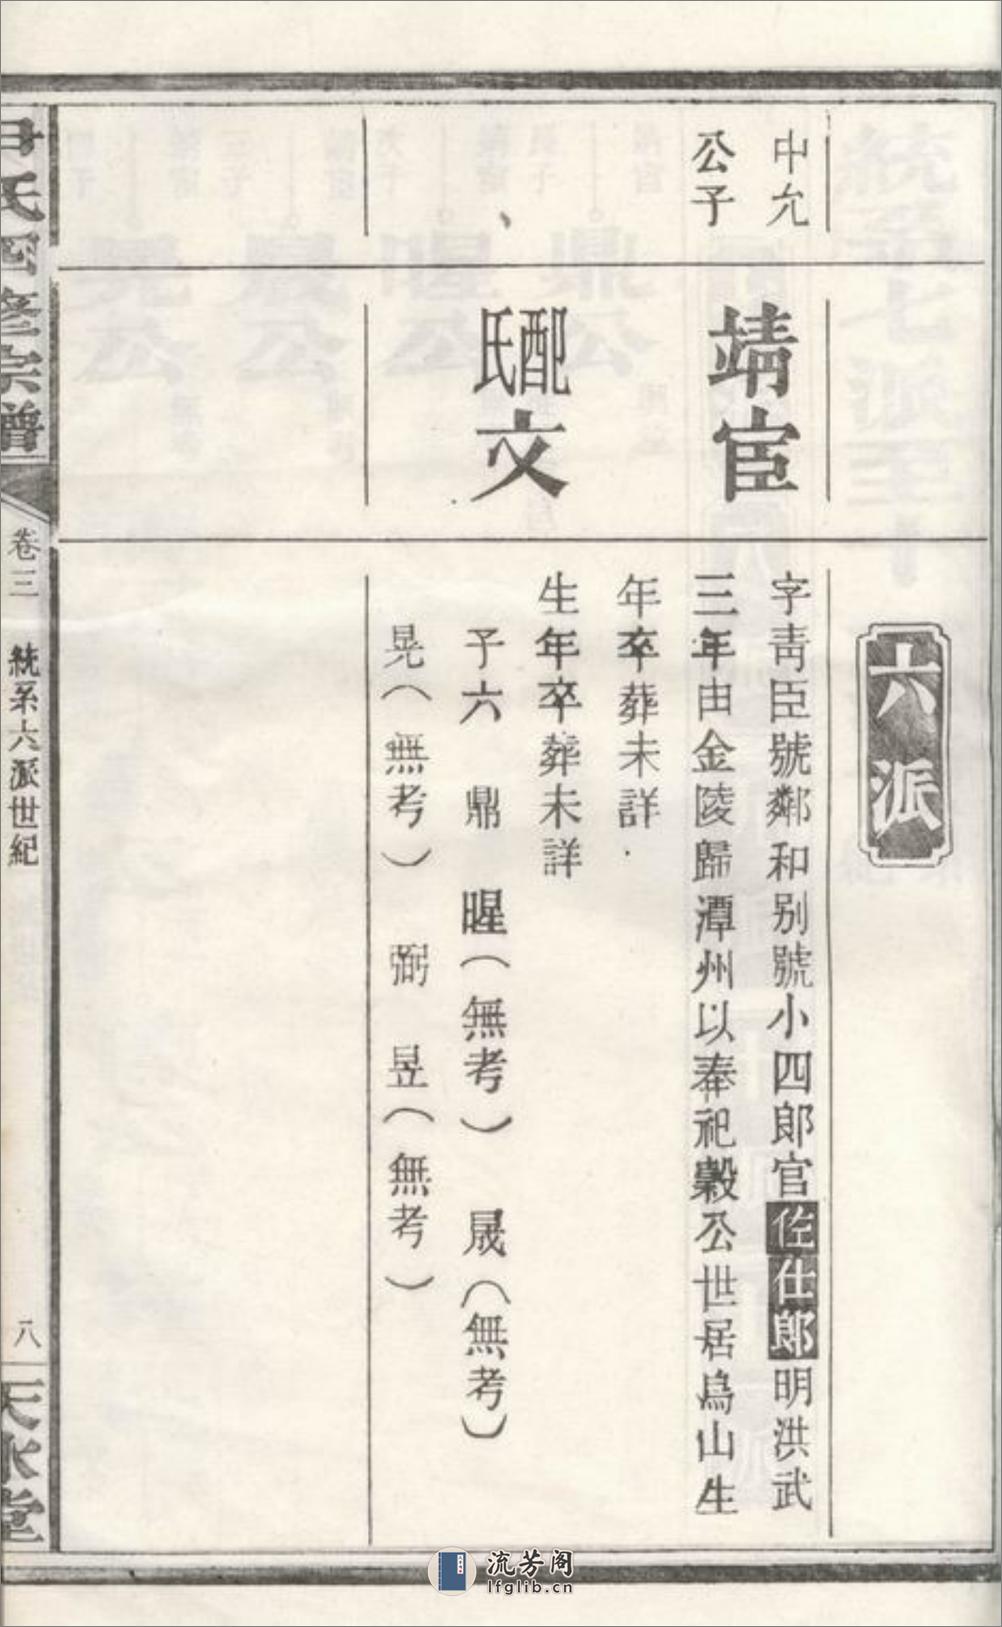 六派
中允
公子
靖宦
字靑臣號鄰和別號小四郎官佐仕郎明洪武
三年由金陵歸潭州以奉祀穀公世居烏山生
年卒葬未詳
、
配文氏
生年卒葬未詳
子六 鼎 暒（無考） 晟（無考）
晃（無考） 弼 昱（無考）
尹氏四修宗譜
卷三 統系六派世紀
八
天水堂
流芳阁
lfglib.cn